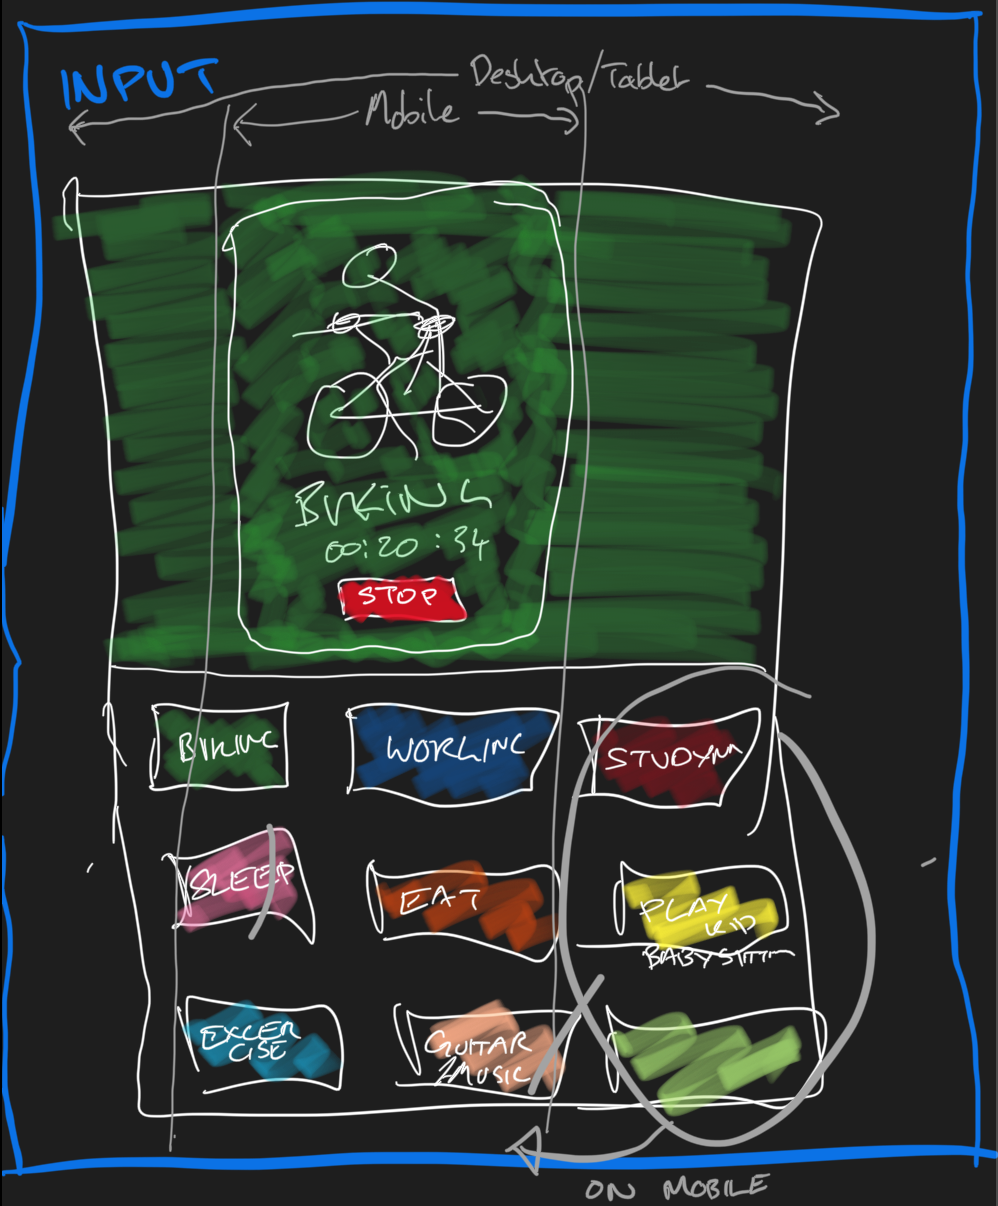 INPUT
Desktop/Tablet
Mobile
BIKING
00:20:34
STOP
BIKING
WORKING
STUDYING
SLEEP
EAT
PLAY
KID
BABYSITTING
EXCER
CISE
GUITAR
MUSIC
ON MOBILE